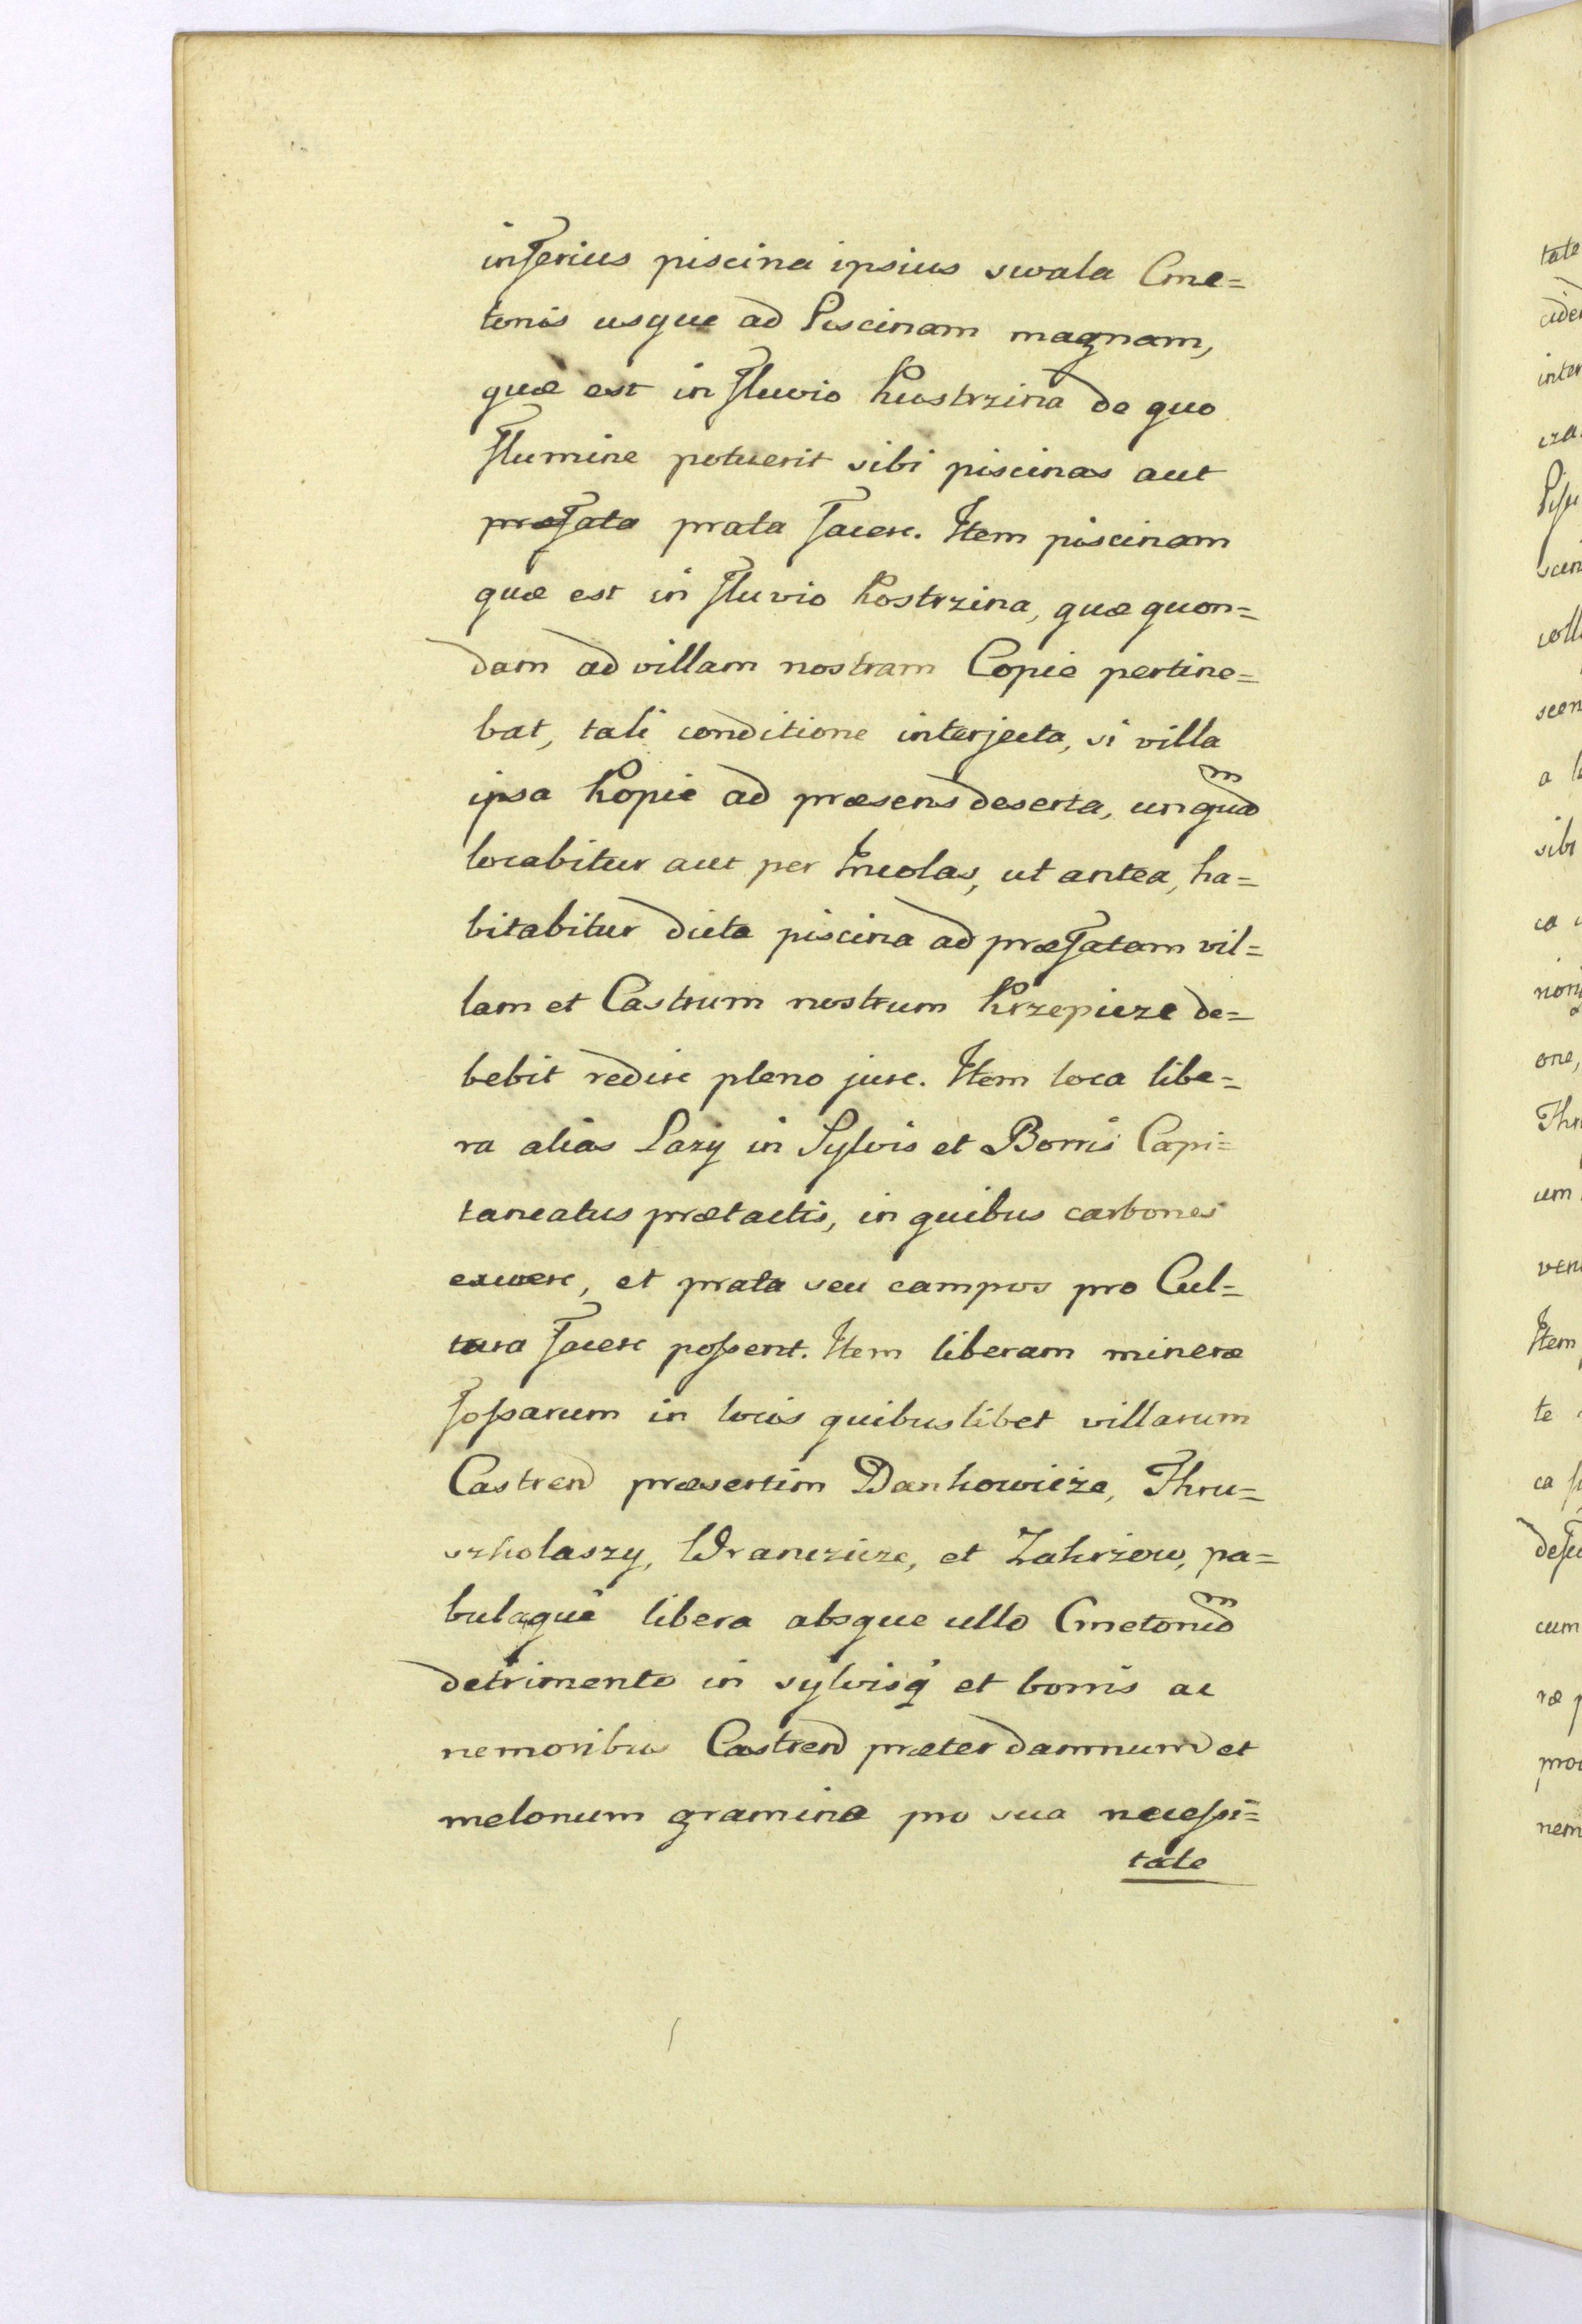 inferius piscina ipsius swala Cme=
tonis usque ad Piscinam magnam,
quæ est in fluvio Kustrzina de quo
flumine potuerit sibi piscinas aut
præfata prata facere. Item piscinam
quæ est in fluvio Kostrzina, quæ quon=
dam ad villam nostram Copie pertine=
bat, tali conditione interjecta, si villa
ipsa Kopie ad præsens deserta, unquam
locabitur aut per Incolas, ut antea, ha=
bitabitur dicta piscina ad præfatam vil=
lam et Castrum nostrum Krzepicze de=
bebit redire pleno jure. Item loca libe=
ra alias Lazy in Sylvis et Borris Capi=
taneatus prætactis, in quibus carbones
exurere, et prata seu campos pro Cul=
tura facere possent. Item liberam mineræ
fossarum in locis quibuslibet villarum
Castren præsertim Dankowicze, Thru=
szkolaszy, Wranczicze, et Zakrzew, pa=
bulaque libera absque ullo Cmetonum
detrimento in sylvisq et borris ac
nemoribus Castren præter damnum et
melonum gramina pro sua necessi=
tate
tate
inter
Item
te
cum
nem